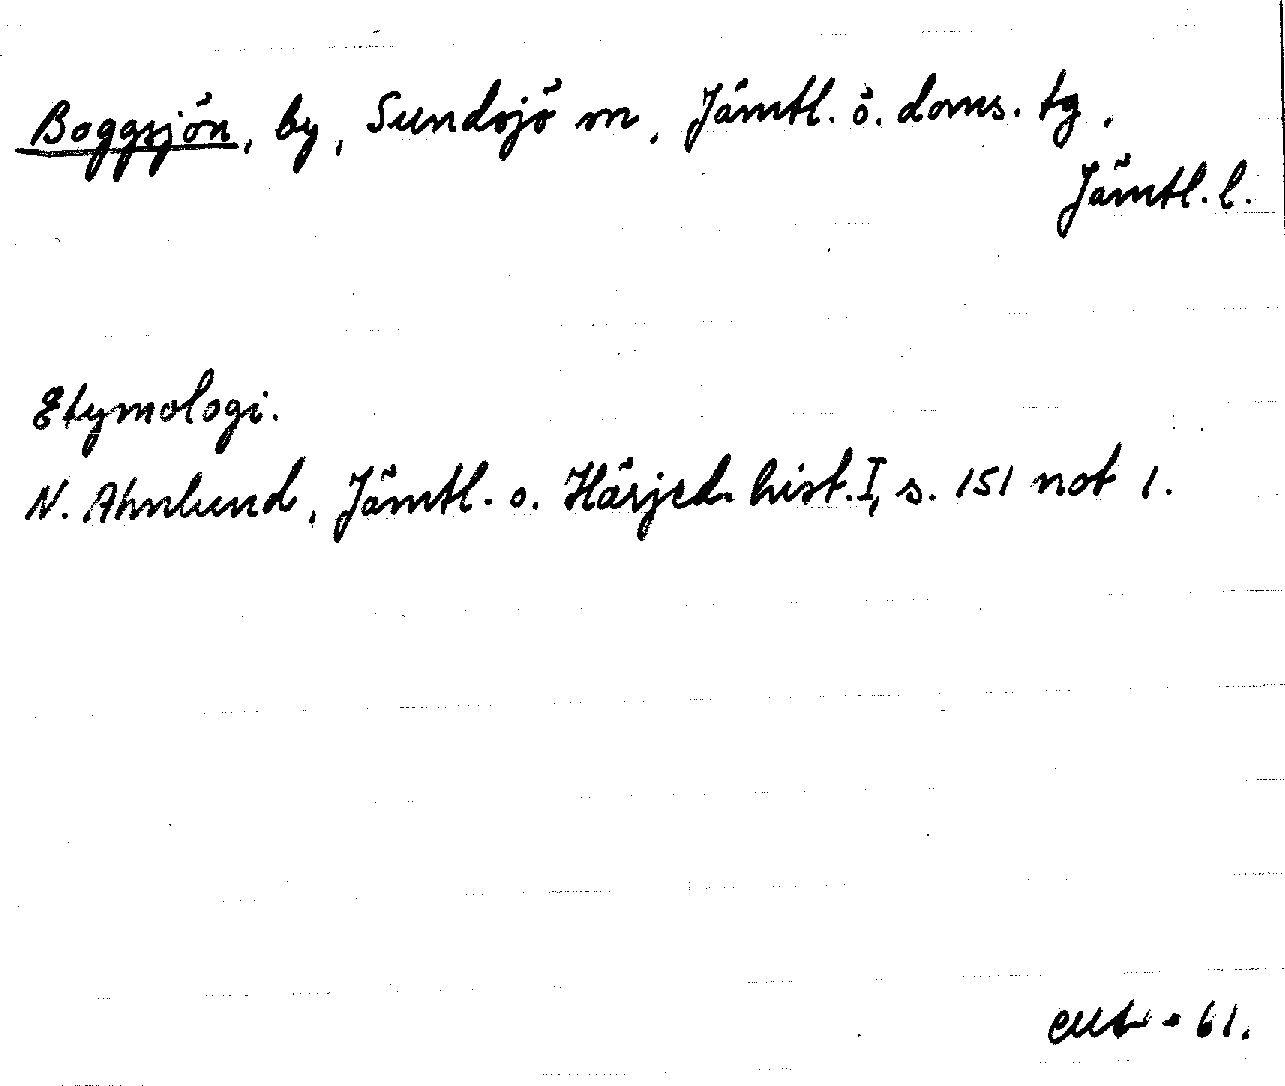 Boggsjön, by, Sundsjö sn, Jämtl. ö. doms. tg,
Jämtl. l.
Etymologi.
N. Ahnlund, Jämtl. o. Härjed. hist. I, s. 151 not 1.
61.